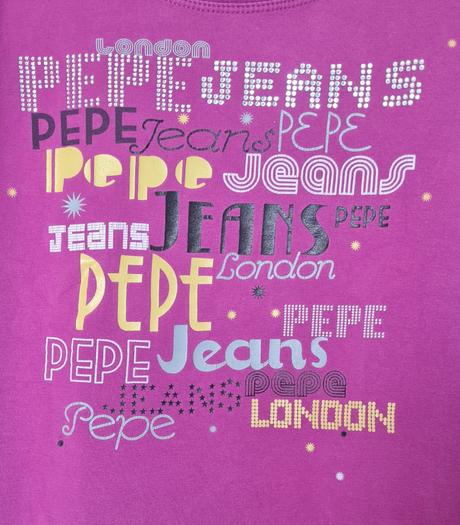 London
PEPE JEANS
PEPE Jeans PEPE
Pepe Jeans
JEANS JEANS PEPE
PEPE London
PEPE
PEPE Jeans
JEANS pepe
Pepe LONDON